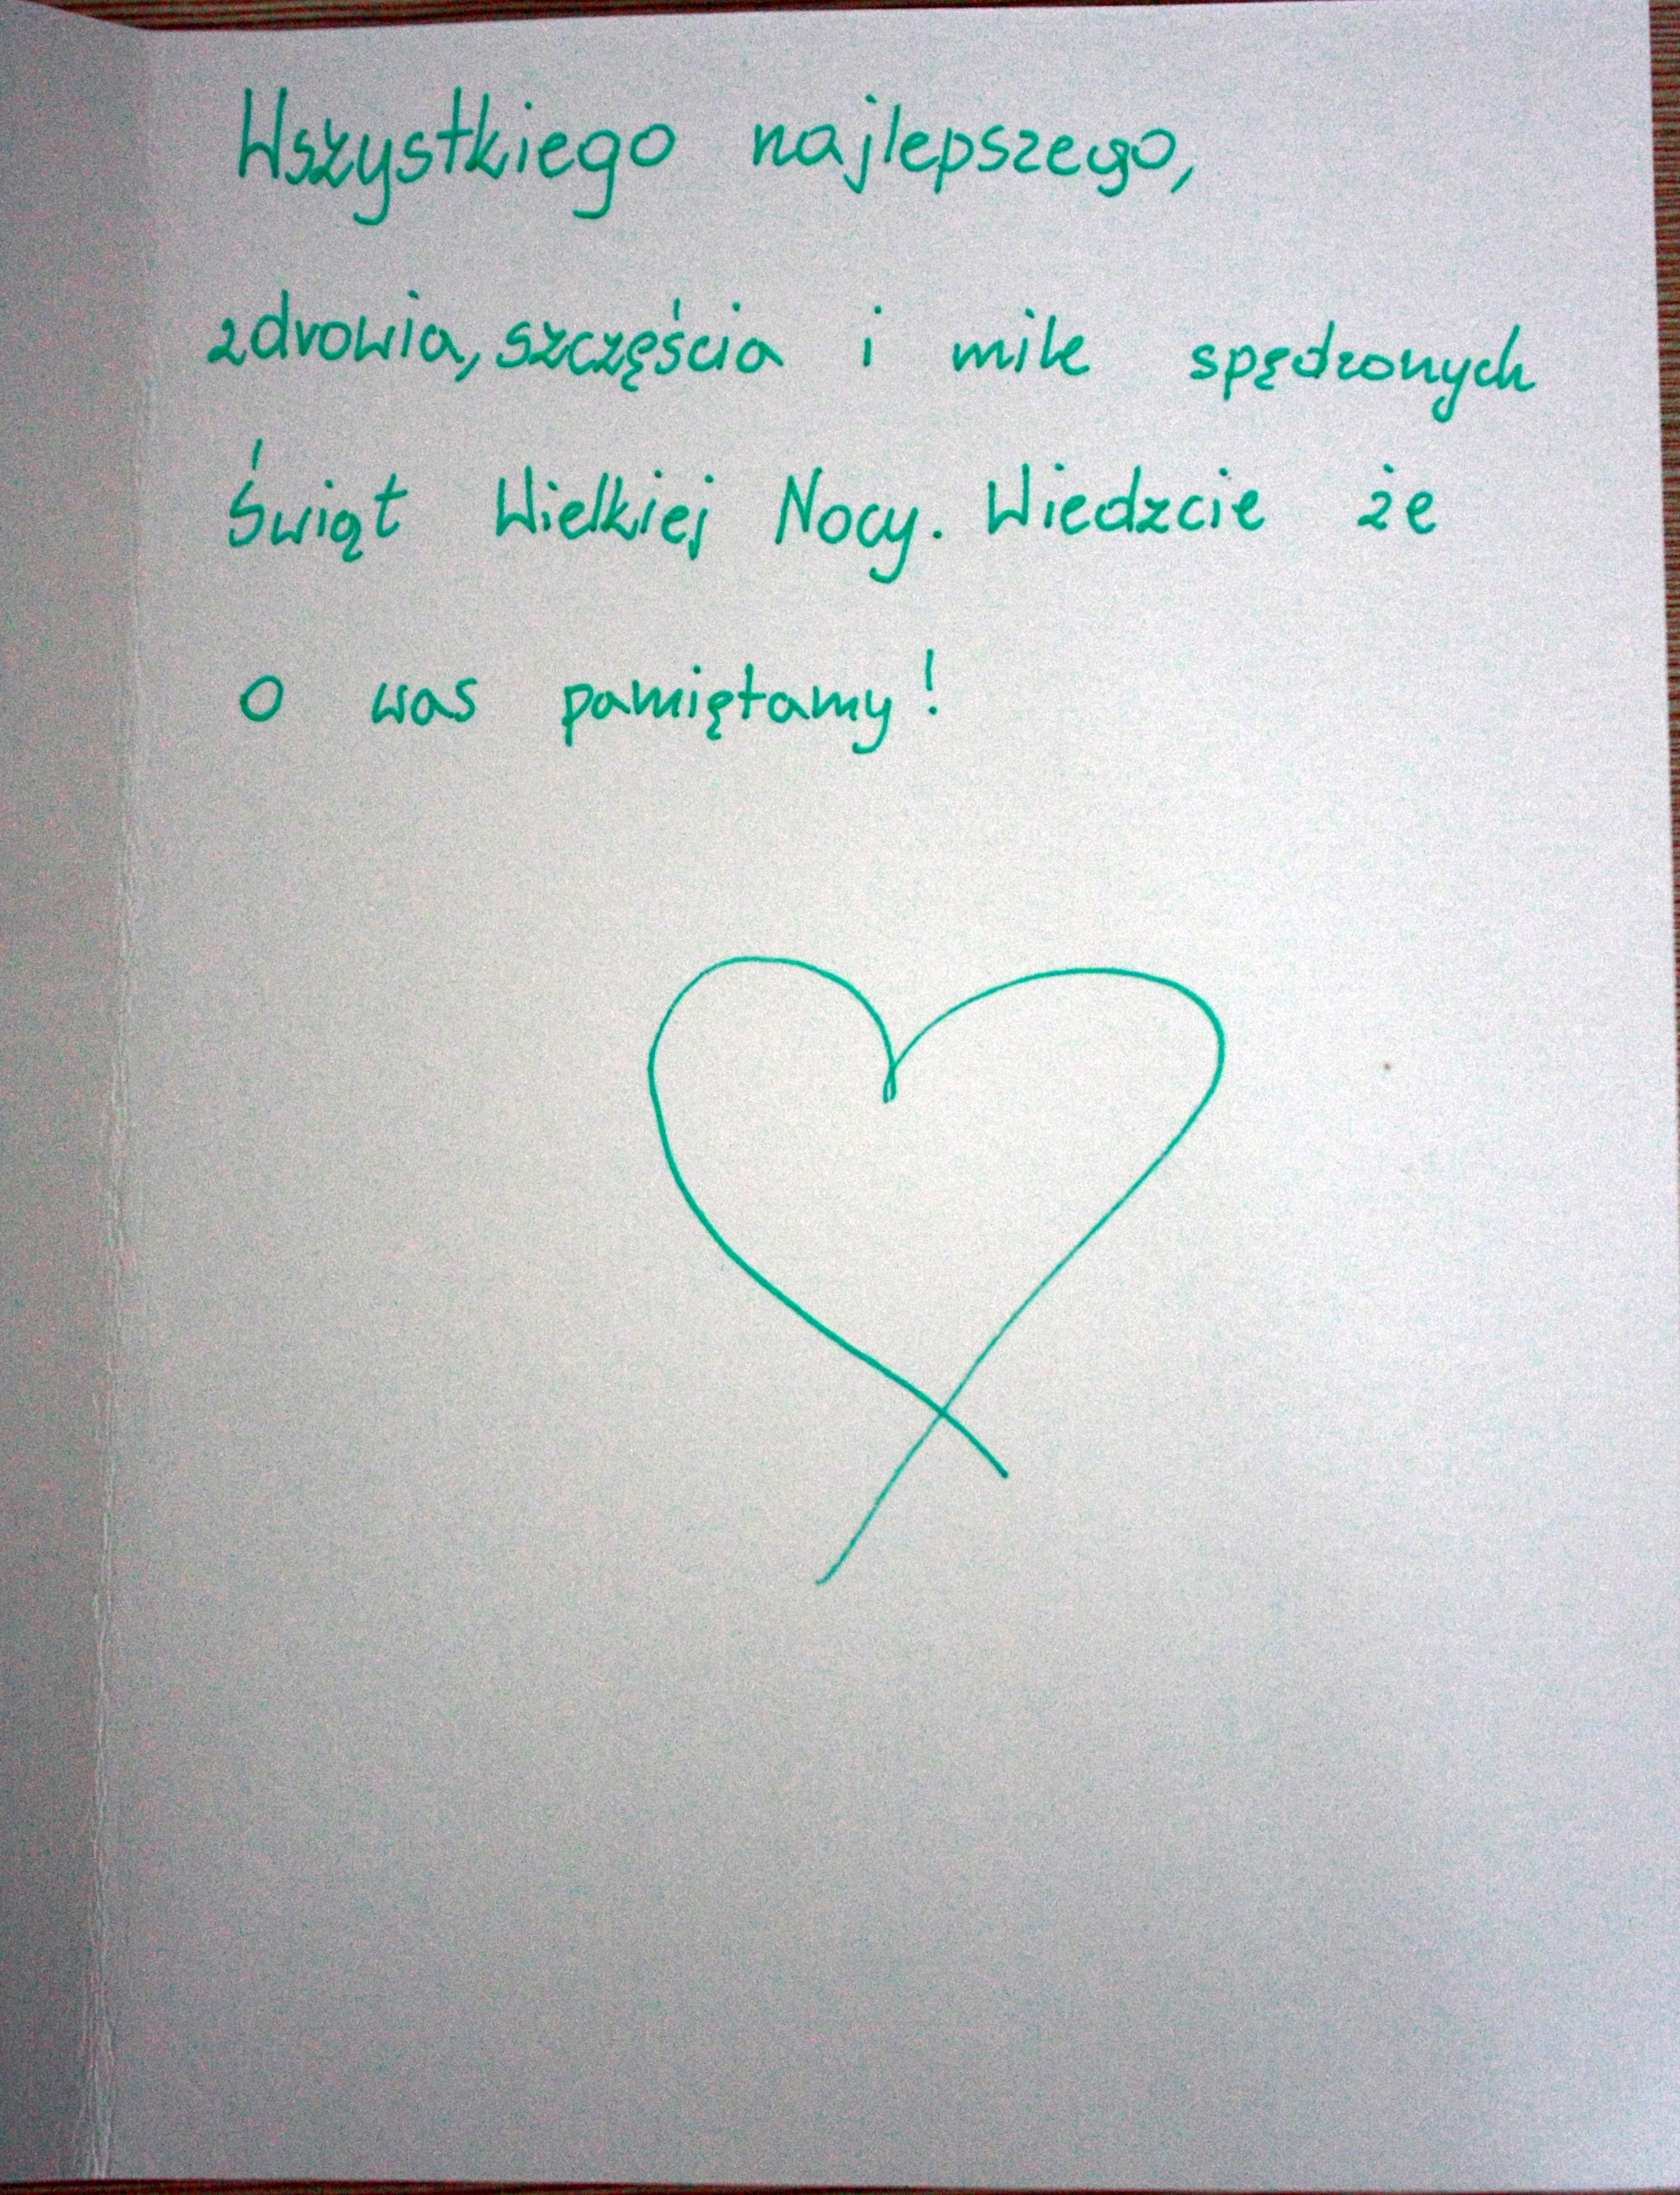 Wszystkiego najlepszego,
zdrowia, szczęścia i mile spędzonych
Świąt Wielkiej Nocy. Wiedzcie że
o was pamiętamy!